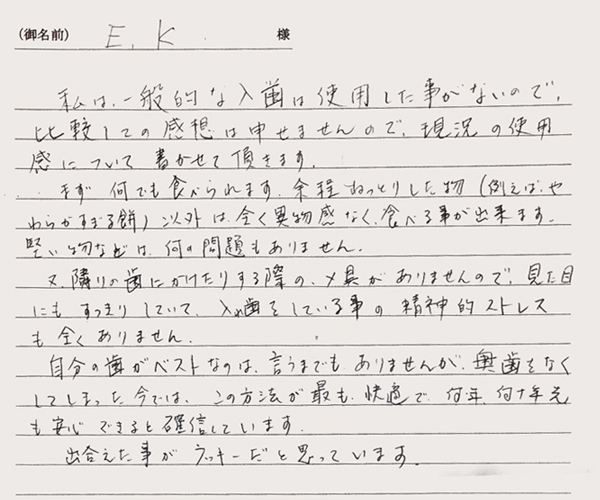 (御名前) E. K 様
私は、一般的な入歯は使用した事がないので、
比較しての感想は申せませんので、現況の使用
感について書かせて頂きます。
まず 何でも食べられます。余程ねっとりした物(例えば、や
わらかすぎる餅)以外は、全く異物感なく、食べる事が出来ます。
堅い物などは、何の問題もありません。
又、隣りの歯にかけたりする際の、メ具がありませんので、見た目
にもすっきりしていて、入れ歯をしている事の精神的ストレス
も全くありません。
自分の歯がベストなのは、言うまでもありませんが、奥歯をなく
してしまった今では、この方法が最も快適で、何年、何十年先
も安心できると確信しています。
出合えた事がラッキーだと思っています。